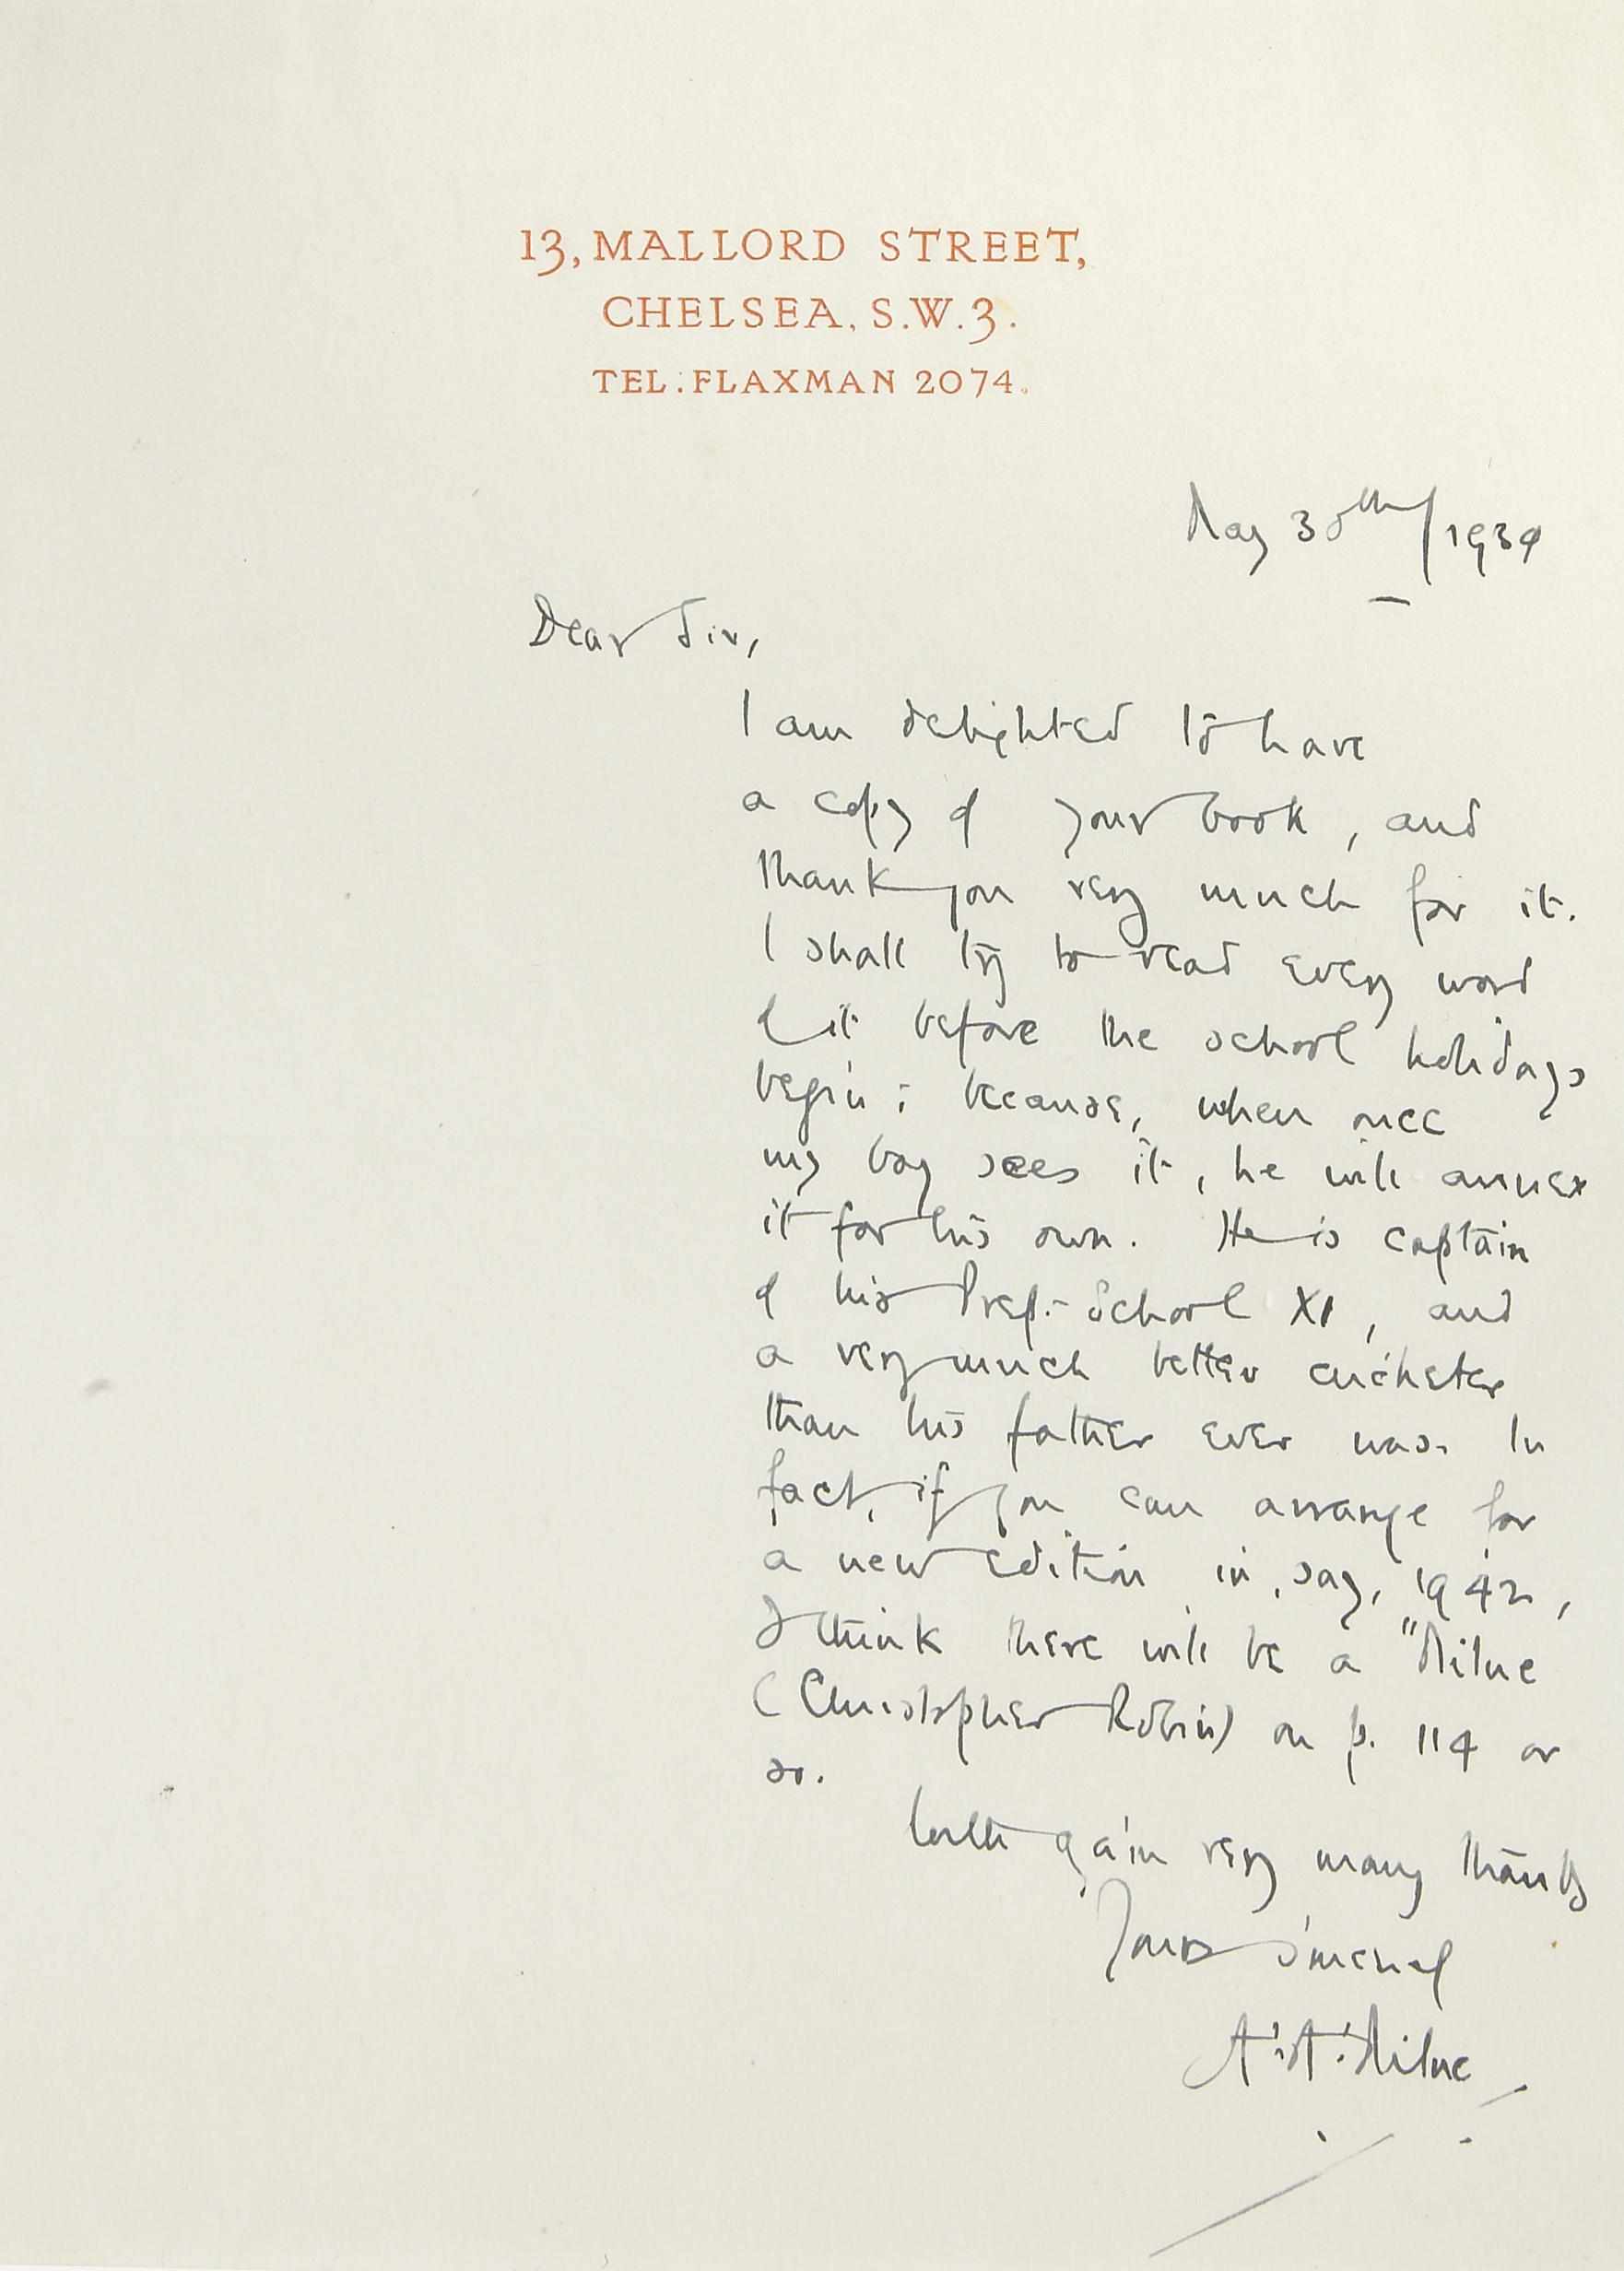 13, MALLORD STREET,
CHELSEA, S.W.3.
TEL: FLAXMAN 2074.
May 30th/1934
Dear Sir,
I am delighted to have
a copy of your book, and
thank you very much for it.
I shall try to read every word
of it before the school holidays
begin; because, when once
my boy sees it, he will annex
it for his own. He is captain
of his Prep.-School XI, and
a very much better cricketer
than his father ever was. In
fact, if you can arrange for
a new edition in, say, 1942,
I think there will be a "Milne
(Christopher Robin) on p. 114 or
so.
With again very many thanks
Yours sincerely
A. A. Milne